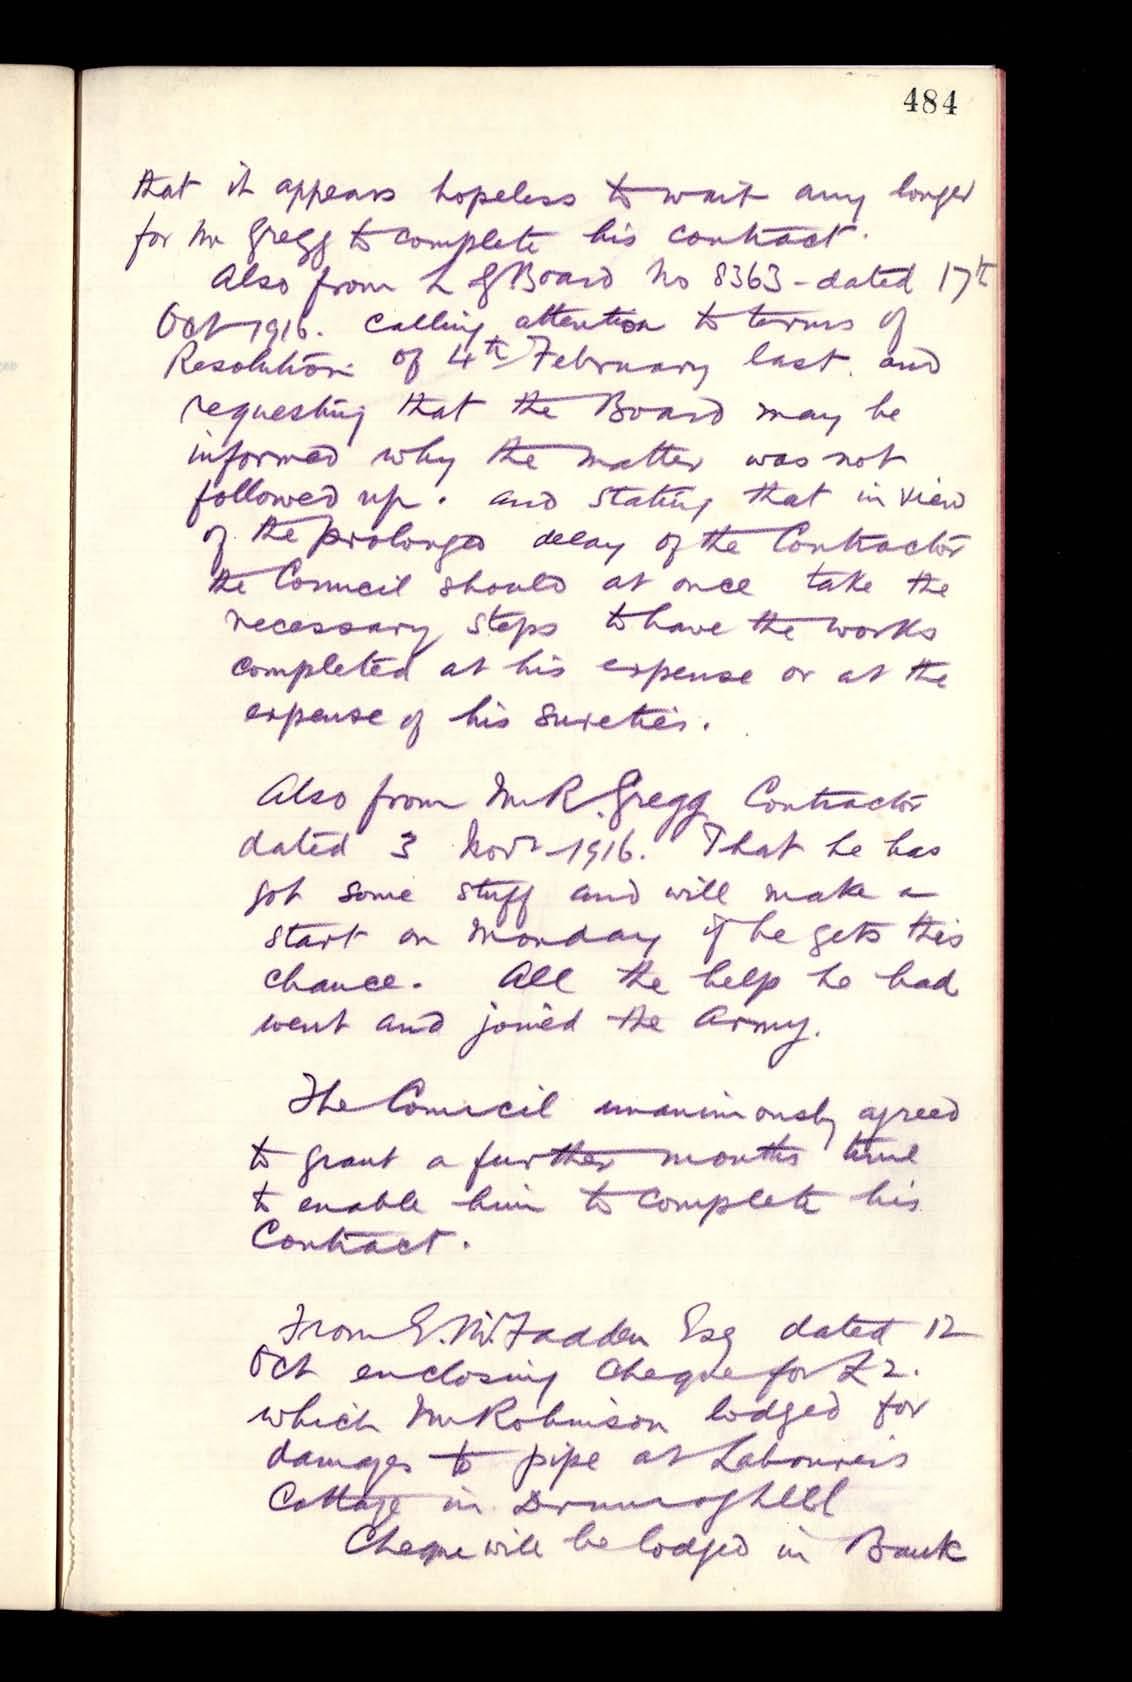 484
that it appears hopeless to wait any longer
for Mr Gregg to complete his contract.
Also from L G Board No 8363 - dated 17th
Oct 1916. calling attention to terms of
Resolution of 4th February last. and
requesting that the Board may be
informed why the matter was not
followed up. and stating that in view
of the prolonged delay of the Contractor
the Council should at once take the
necessary steps to have the works
completed at his expense or at the
expense of his sureties.
Also from Mr R. Gregg Contractor
dated 3 Novr 1916. That he has
got some stuff and will make a
start on Monday if he gets this
chance. All the help he had
went and joined the Army.
The Council unanimously agreed
to grant a further months time
to enable him to complete his
Contract.
From E. McFadden Esq dated 12
Oct enclosing cheque for £2.
which Mr Robinson lodged for
damages to pipe at Labourers
Cottage in
Cheque will be lodged in Bank